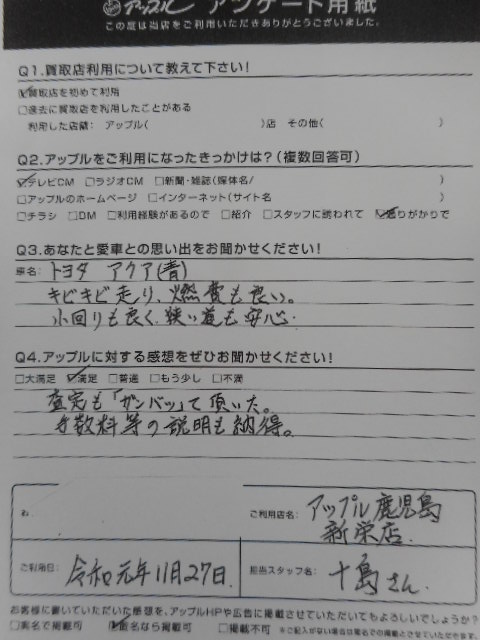 アップル アンケート用紙
この度は当店をご利用いただきありがとうございました。
Q1.買取店利用について教えて下さい!
買取店を初めて利用
□過去に買取店を利用したことがある
利用した店舗: アップル( )店 その他( )
Q2.アップルをご利用になったきっかけは?(複数回答可)
テレビCM □ラジオCM □新聞・雑誌(媒体名/ )
□アップルのホームページ □インターネット(サイト名 )
□チラシ □DM □利用経験があるので □紹介 □スタッフに誘われて 通りがかりで
Q3.あなたと愛車との思い出をお聞かせください!
車名: トヨタ アクア(青)
キビキビ走り、燃費も良い。
小回りも良く、狭い道も安心.
Q4.アップルに対する感想をぜひお聞かせください!
□大満足 満足 □普通 □もう少し □不満
査定も「ガンバッ」て頂いた。
手数料等の説明も納得。
ご利用店名: アップル鹿児島
新栄店.
ご利用日: 令和元年11月27日.
担当スタッフ名: 十島さん.
お客様に書いていただいた感想を、アップルHPや広告に掲載させていただいてもよろしいでしょうか?
□実名で掲載可 匿名なら掲載可 □掲載不可 ※ご記入がない場合は匿名での掲載とさせていただきます。